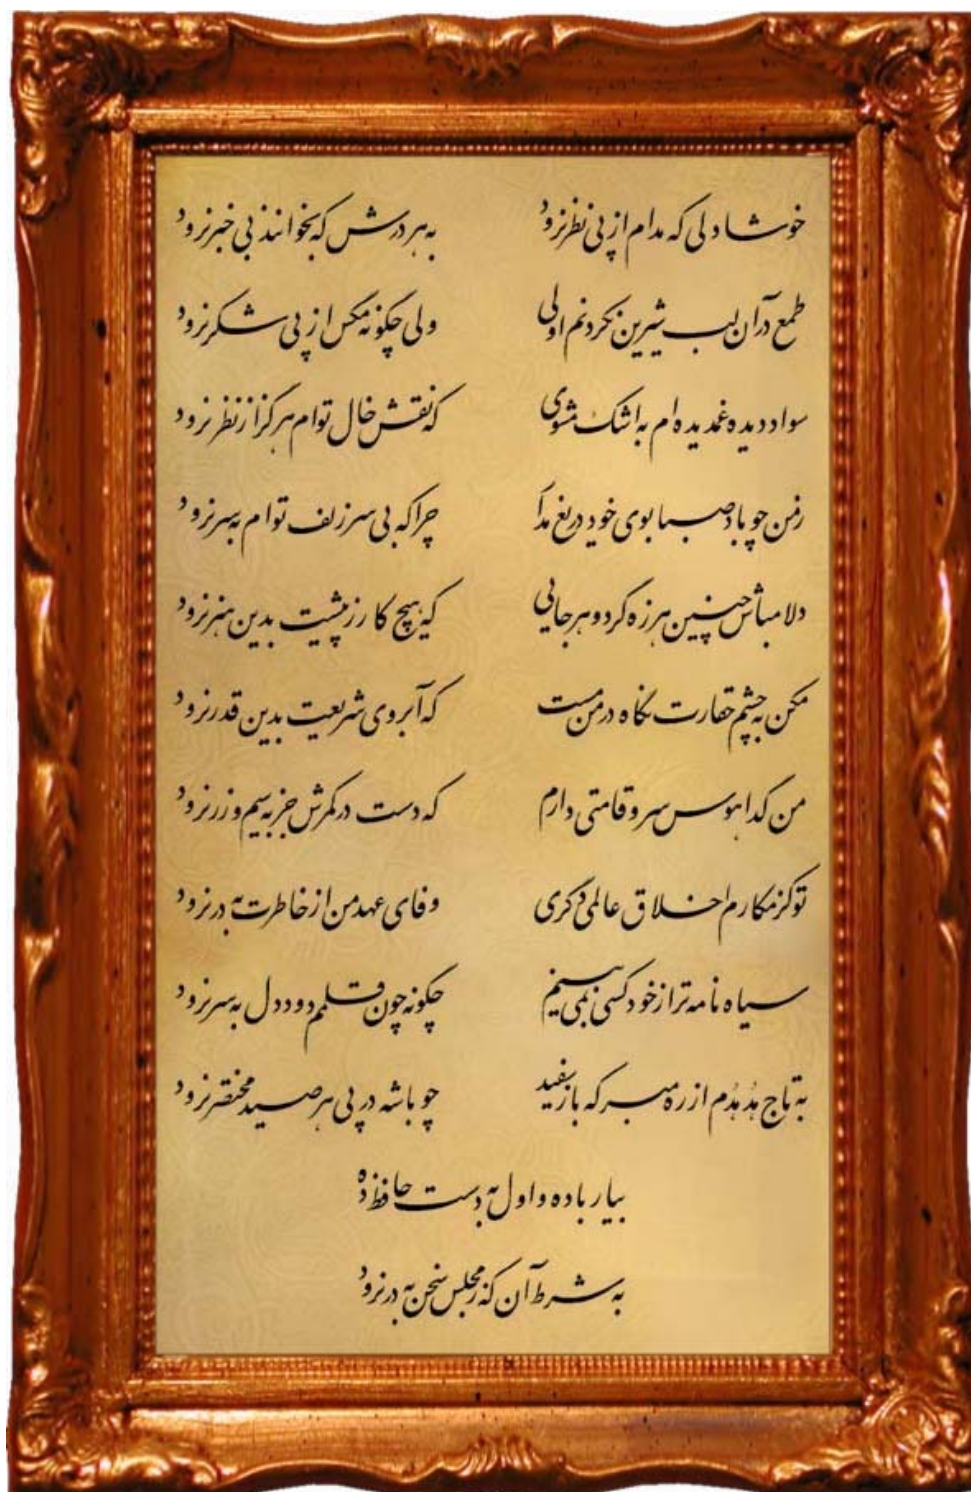 خوشا دلی که مدام از پی نظر نرود به هر درش که بخوانند بی خبر نرود
طمع در آن لب شیرین نکردنم اولی ولی چگونه مگس از پی شکر نرود
سواد دیده غمدیده ام به اشک مشوی که نقش خال توام هرگز از نظر نرود
ز من چو باد صبا بوی خود دریغ مدار چرا که بی سر زلف توام به سر نرود
دلا مباش چنین هرزه گرد و هرجایی که هیچ کار ز پیشت بدین هنر نرود
مکن به چشم حقارت نگاه در من مست که آبروی شریعت بدین قدر نرود
من گدا هوس سروقامتی دارم که دست در کمرش جز به سیم و زر نرود
تو کز مکارم اخلاق عالمی دگری وفای عهد من از خاطرت به در نرود
سیاه نامه تر از خود کسی نمی بینم چگونه چون قلمم دود دل به سر نرود
به تاج هدهدم از ره مبر که باز سفید چو باشه در پی هر صید مختصر نرود
بیار باده و اول به دست حافظ ده
به شرط آن که ز مجلس سخن به در نرود